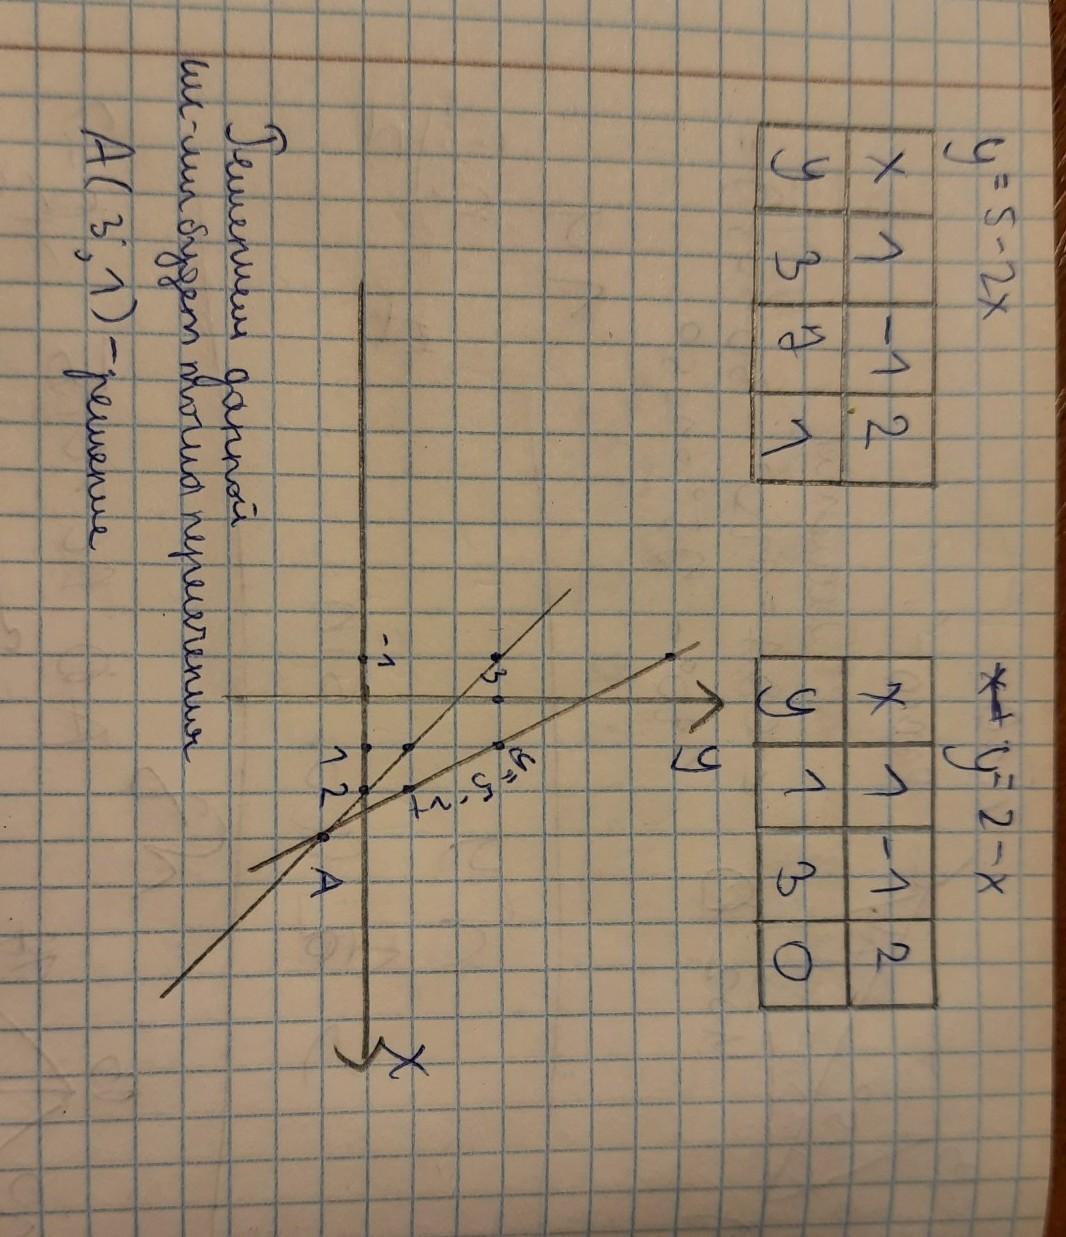 y = 5 - 2x
x 1 -1 2
y 3 7 1
y = 2 - x
x 1 -1 2
y 1 3 0
y
3
-1
1 2
A
x
Решением данной
сис-мы будет точка пересечения
A( 3; 1) - решение